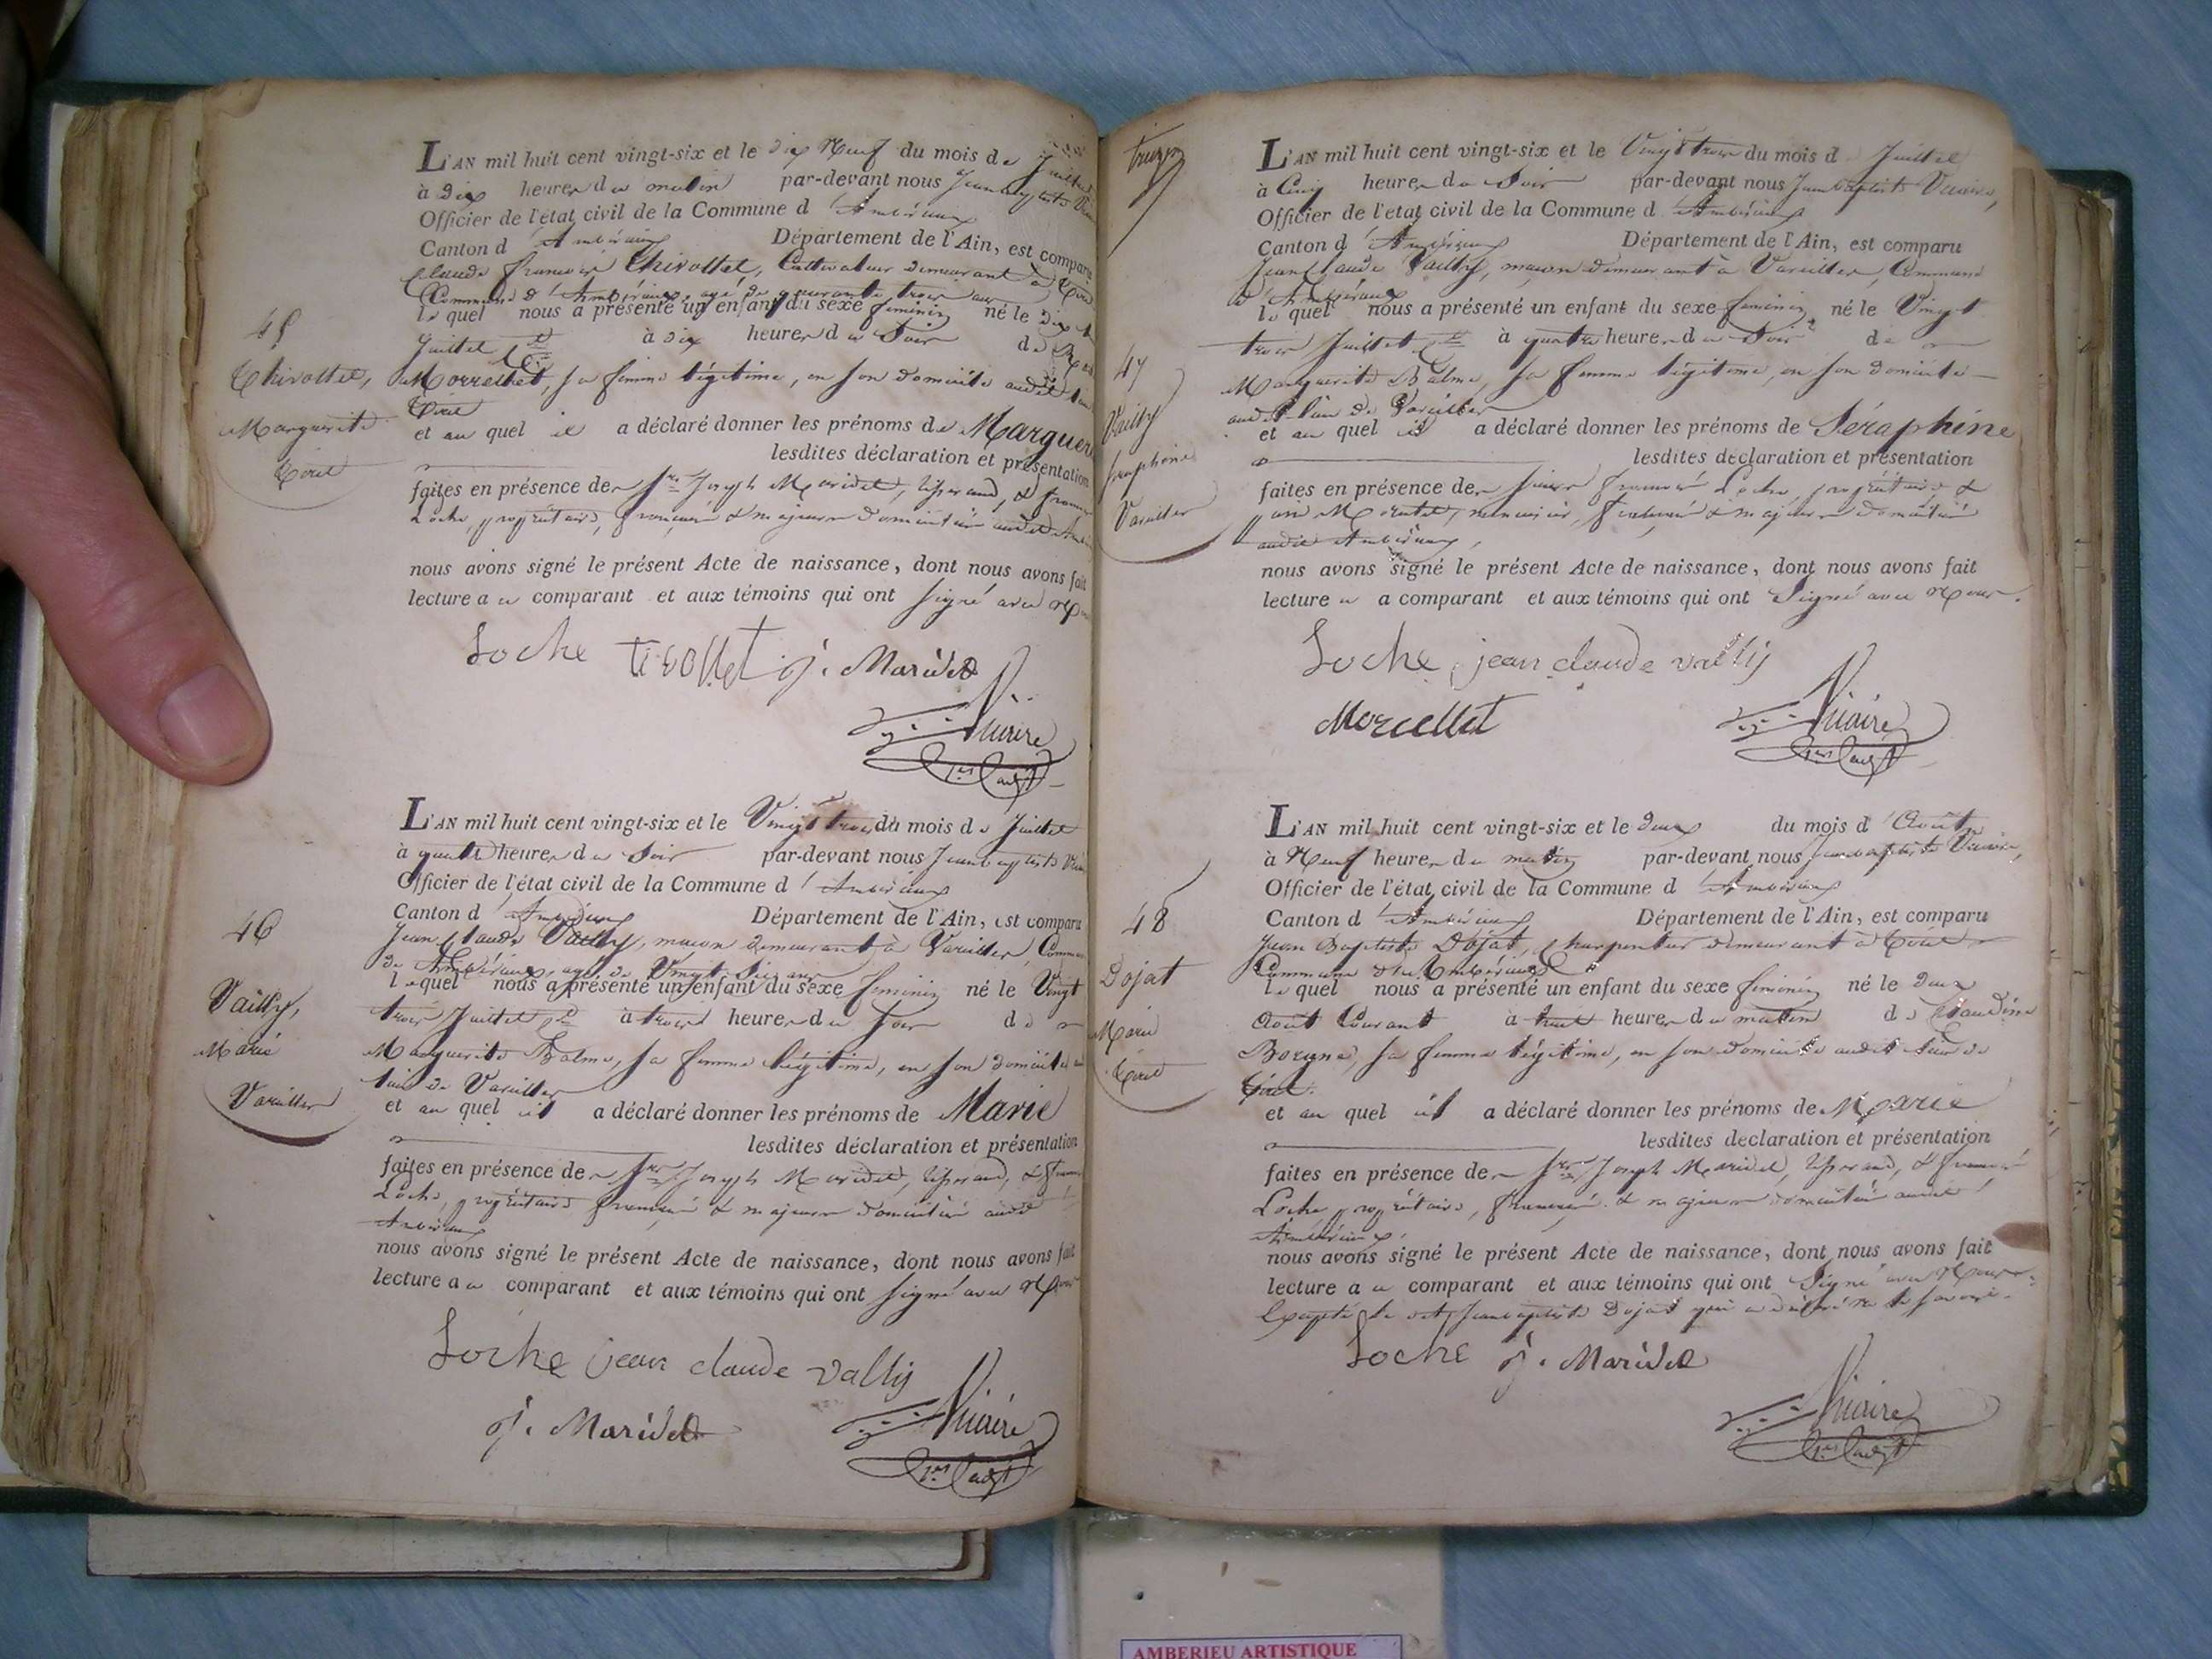 L'AN mil huit cent vingt-six et le dix Neuf du mois de Juillet
à Dix heures du matin par-devant nous Jean baptiste
Officier de l'état civil de la Commune d'Ambérieux
Canton d'Ambérieux Département de l'Ain, est comparu
Claude françois Thivollet, Cultivateur demeurant à
Commune d'Ambérieux, agé de quarante trois ans
lequel nous a présenté un enfant du sexe feminin né le dix
Juillet à dix heures du Soir de
sa femme légitime, en son domicile audit
et auquel il a déclaré donner les prénoms de Marguer
lesdites déclaration et présentation
faites en présence de Joseph Maridet, tisserand, &
Loche, propriétaire, français & majeurs domiciliés audit
nous avons signé le présent Acte de naissance, dont nous avons fait
lecture au comparant et aux témoins qui ont Signé avec
45
Thivollet,
Marguerite
Loche tivollet j. Maridet
Vicaire
L'AN mil huit cent vingt-six et le Vingt trois du mois de Juillet
à quatre heures du Soir par-devant nous Jean baptiste
Officier de l'état civil de la Commune d'Ambérieux
Canton d'Ambérieux Département de l'Ain, est comparu
Jean Claude Vailly, maçon demeurant à Vareilles, Commune
d'Ambérieux, agé de Vingt Six ans
lequel nous a présenté un enfant du sexe feminin né le Vingt
trois Juillet à trois heures du Soir de
Marguerite Balme, sa femme légitime, en son domicile au
lieu de Vareilles
et auquel il a déclaré donner les prénoms de Marie
lesdites déclaration et présentation
faites en présence de Joseph Maridet, tisserand, &
Loche, propriétaire français & majeurs domiciliés audit
Ambérieux
nous avons signé le présent Acte de naissance, dont nous avons fait
lecture au comparant et aux témoins qui ont signé avec
46
Vailly,
Marie
Vareilles
Loche jean claude vally
j. Maridet
Vicaire
L'AN mil huit cent vingt-six et le Vingt trois du mois d Juillet
à Cinq heures du Soir par-devant nous Jean baptiste Vicaire,
Officier de l'état civil de la Commune d'Ambérieux
Canton d'Ambérieux Département de l'Ain, est comparu
Jean Claude Vailly, maçon demeurant à Vareilles, Commune
d'Ambérieux
lequel nous a présenté un enfant du sexe feminin né le Vingt
trois Juillet à quatre heures du Soir de
Marguerite Balme, sa femme légitime, en son domicile
audit lieu de Vareilles
et auquel il a déclaré donner les prénoms de Séraphine
lesdites déclaration et présentation
faites en présence de françois Loche, propriétaire &
menuisier, français & majeurs domiciliés
audit Ambérieux,
nous avons signé le présent Acte de naissance, dont nous avons fait
lecture au comparant et aux témoins qui ont Signé avec Nous.
47
Vailly
Seraphine
Vareilles
Loche jean claude vally
Morellet
Vicaire
L'AN mil huit cent vingt-six et le deux du mois d'Août
à Neuf heures du matin par-devant nous Jean baptiste Vicaire,
Officier de l'état civil de la Commune d'Ambérieux
Canton d'Ambérieux Département de l'Ain, est comparu
Jean Baptiste Dojat, Charpentier demeurant à
Commune d'Ambérieux
lequel nous a présenté un enfant du sexe feminin né le deux
Août Courant à heures du matin de Claudine
sa femme légitime, en son domicile audit lieu de
et auquel il a déclaré donner les prénoms de Marie
lesdites déclaration et présentation
faites en présence de Joseph Maridet, tisserand, & françois
Loche propriétaire, français & majeurs domiciliés audit
Ambérieux,
nous avons signé le présent Acte de naissance, dont nous avons fait
lecture au comparant et aux témoins qui ont Signé avec Nous
Excepté ledit Jean baptiste Dojat qui a déclaré ne le savoir.
48
Dojat
Marie
Loche j. Maridet
Vicaire
AMBERIEU ARTISTIQUE